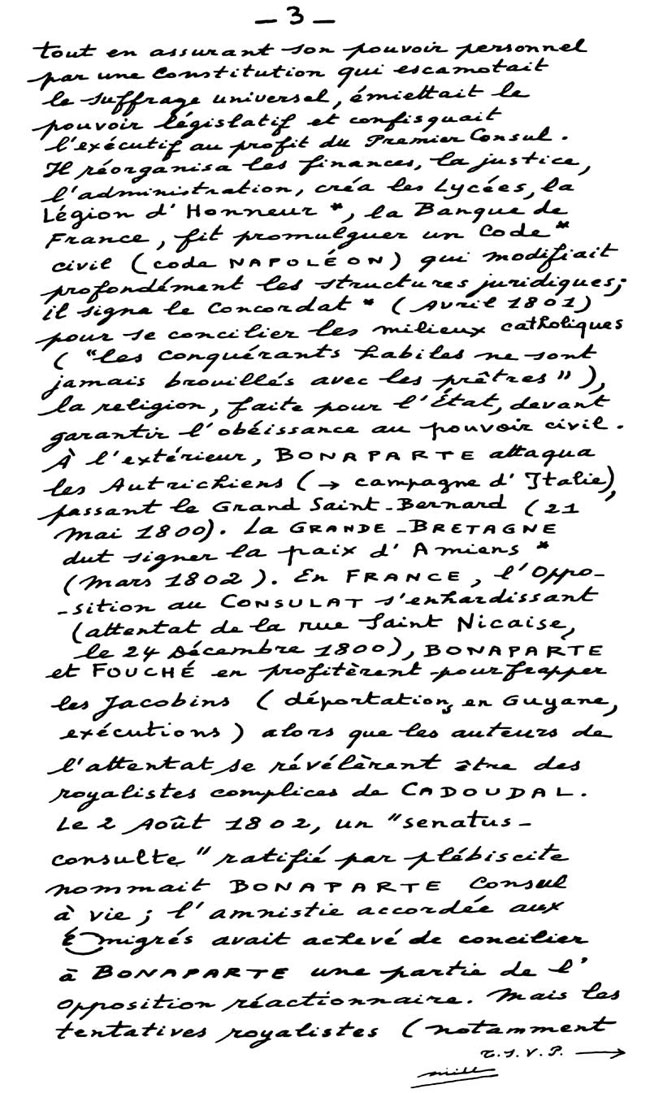 - 3 -
tout en assurant son pouvoir personnel
par une Constitution qui escamotait
le suffrage universel, émiettait le
pouvoir législatif et confisquait
l'exécutif au profit du Premier Consul.
Il réorganisa les finances, la justice,
l'administration, créa les Lycées, la
Légion d'Honneur *, la Banque de
France, fit promulguer un Code *
civil (code NAPOLÉON) qui modifiait
profondément les structures juridiques;
il signe le Concordat * (Avril 1801)
pour se concilier les milieux catholiques
("les conquérants habiles ne sont
jamais brouillés avec les prêtres"),
la religion, faite pour l'État, devant
garantir l'obéissance au pouvoir civil.
À l'extérieur, BONAPARTE attaqua
les Autrichiens (→ campagne d'Italie),
passant le Grand Saint-Bernard (21
mai 1800). La GRANDE-BRETAGNE
dut signer la paix d'Amiens *
(Mars 1802). En FRANCE, l'Oppo-
-sition au CONSULAT s'enhardissant
(attentat de la rue Saint Nicaise,
le 24 Décembre 1800), BONAPARTE
et FOUCHÉ en profitèrent pour frapper
les Jacobins (déportations en Guyane,
exécutions) alors que les auteurs de
l'attentat se révélèrent être des
royalistes complices de CADOUDAL.
Le 2 Août 1802, un "senatus-
consulte" ratifié par plébiscite
nommait BONAPARTE Consul
à vie ; l'amnistie accordée aux
Émigrés avait achevé de concilier
à BONAPARTE une partie de l'
Opposition réactionnaire. Mais les
tentatives royalistes (notamment
T.S.V.P. →